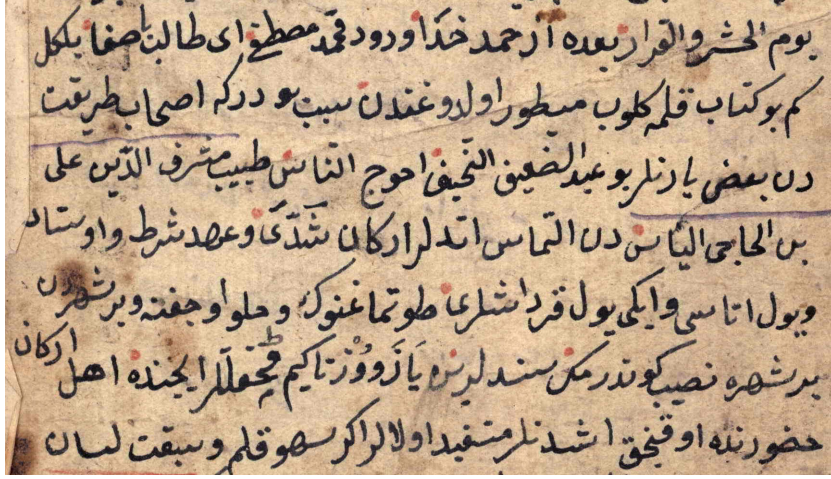 يوم الحشر والقرار بعده از حمد خدا و درود محمد مصطفى اى طالب باصفا بلكل
كم بو كتاب قلمه كلوب مسطور اولدوغندن سبب بو دركه اصحاب طريقت
دن بعض يارنلر بو عبد الضعيف النحيف احوج الناس طبيب مشرف الدين على
بن الحاجى الياس دن التماس اتدلر اركان شد و عهد شرط و اوستاد
و يول اتاسى و ايكى يول قرداشلرى طوتماغنوك و حلوا و جفته و بر شهردن
بر شهره نصيب كوندرمك سندلرين يازووز تا كيم محفللر ايجنده اهل اركان
حضورنده اوقنجق اشدنلر مستفيد اولالر اكر سهو قلم و سبقت لسان